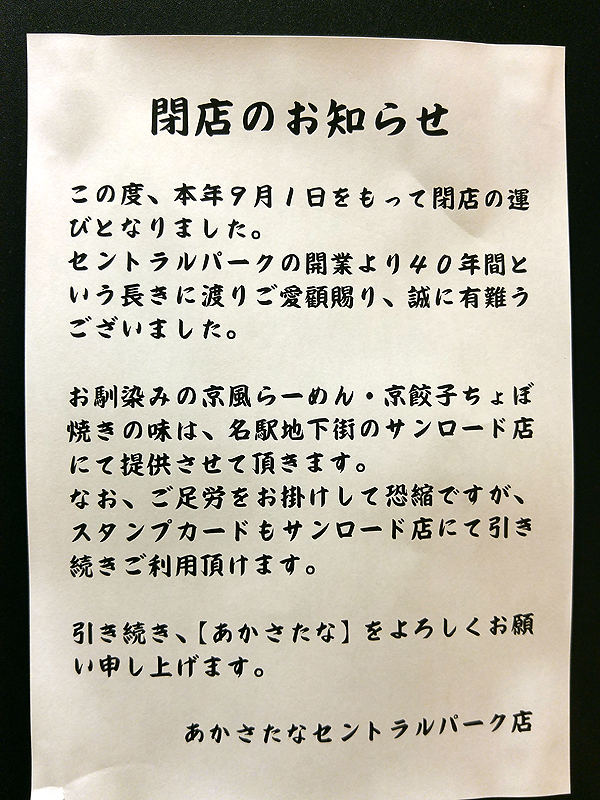 閉店のお知らせ
この度、本年９月１日をもって閉店の運
びとなりました。
セントラルパークの開業より４０年間と
いう長きに渡りご愛顧賜り、誠に有難う
ございました。
お馴染みの京風らーめん・京餃子ちょぼ
焼きの味は、名駅地下街のサンロード店
にて提供させて頂きます。
なお、ご足労をお掛けして恐縮ですが、
スタンプカードもサンロード店にて引き
続きご利用頂けます。
引き続き、【あかさたな】をよろしくお願
い申し上げます。
あかさたなセントラルパーク店